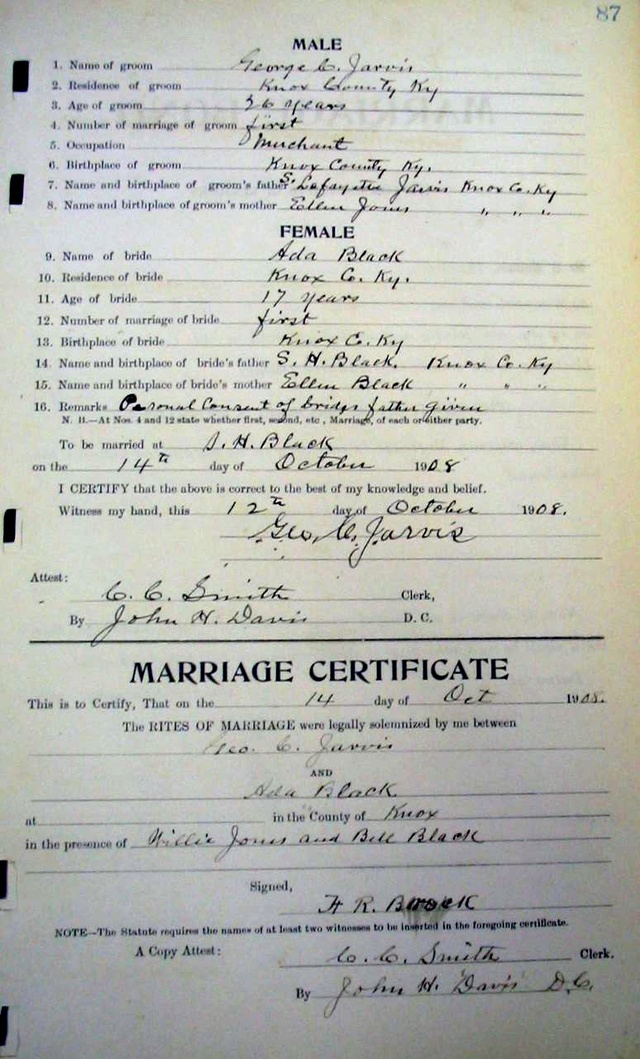 87
MALE
1. Name of groom George C. Jarvis
2. Residence of groom Knox County Ky
3. Age of groom 26 years
4. Number of marriage of groom first
5. Occupation Merchant
6. Birthplace of groom Knox County Ky.
7. Name and birthplace of groom's father S. Lafayette Jarvis Knox Co. Ky
8. Name and birthplace of groom's mother Ellen Jones " " "
FEMALE
9. Name of bride Ada Black
10. Residence of bride Knox Co. Ky.
11. Age of bride 17 years
12. Number of marriage of bride first
13. Birthplace of bride Knox Co. Ky
14. Name and birthplace of bride's father S. H. Black. Knox Co. Ky
15. Name and birthplace of bride's mother Ellen Black " " "
16. Remarks Personal Consent of brides father given
N. B.—At Nos. 4 and 12 state whether first, second, etc., Marriage, of each or either party.
To be married at S. H. Black
on the 14th day of October 1908
I CERTIFY that the above is correct to the best of my knowledge and belief.
Witness my hand, this 12th day of October 1908.
Geo. C. Jarvis
Attest:
C. C. Smith Clerk,
By John H. Davis D. C.
MARRIAGE CERTIFICATE
This is to Certify, That on the 14 day of Oct 1908.
The RITES OF MARRIAGE were legally solemnized by me between
Geo. C. Jarvis
AND
Ada Black
at in the County of Knox
in the presence of Willie Jones and Bill Black
Signed,
H R.
NOTE—The Statute requires the names of at least two witnesses to be inserted in the foregoing certificate.
A Copy Attest: C. C. Smith Clerk.
By John H. Davis D.C.